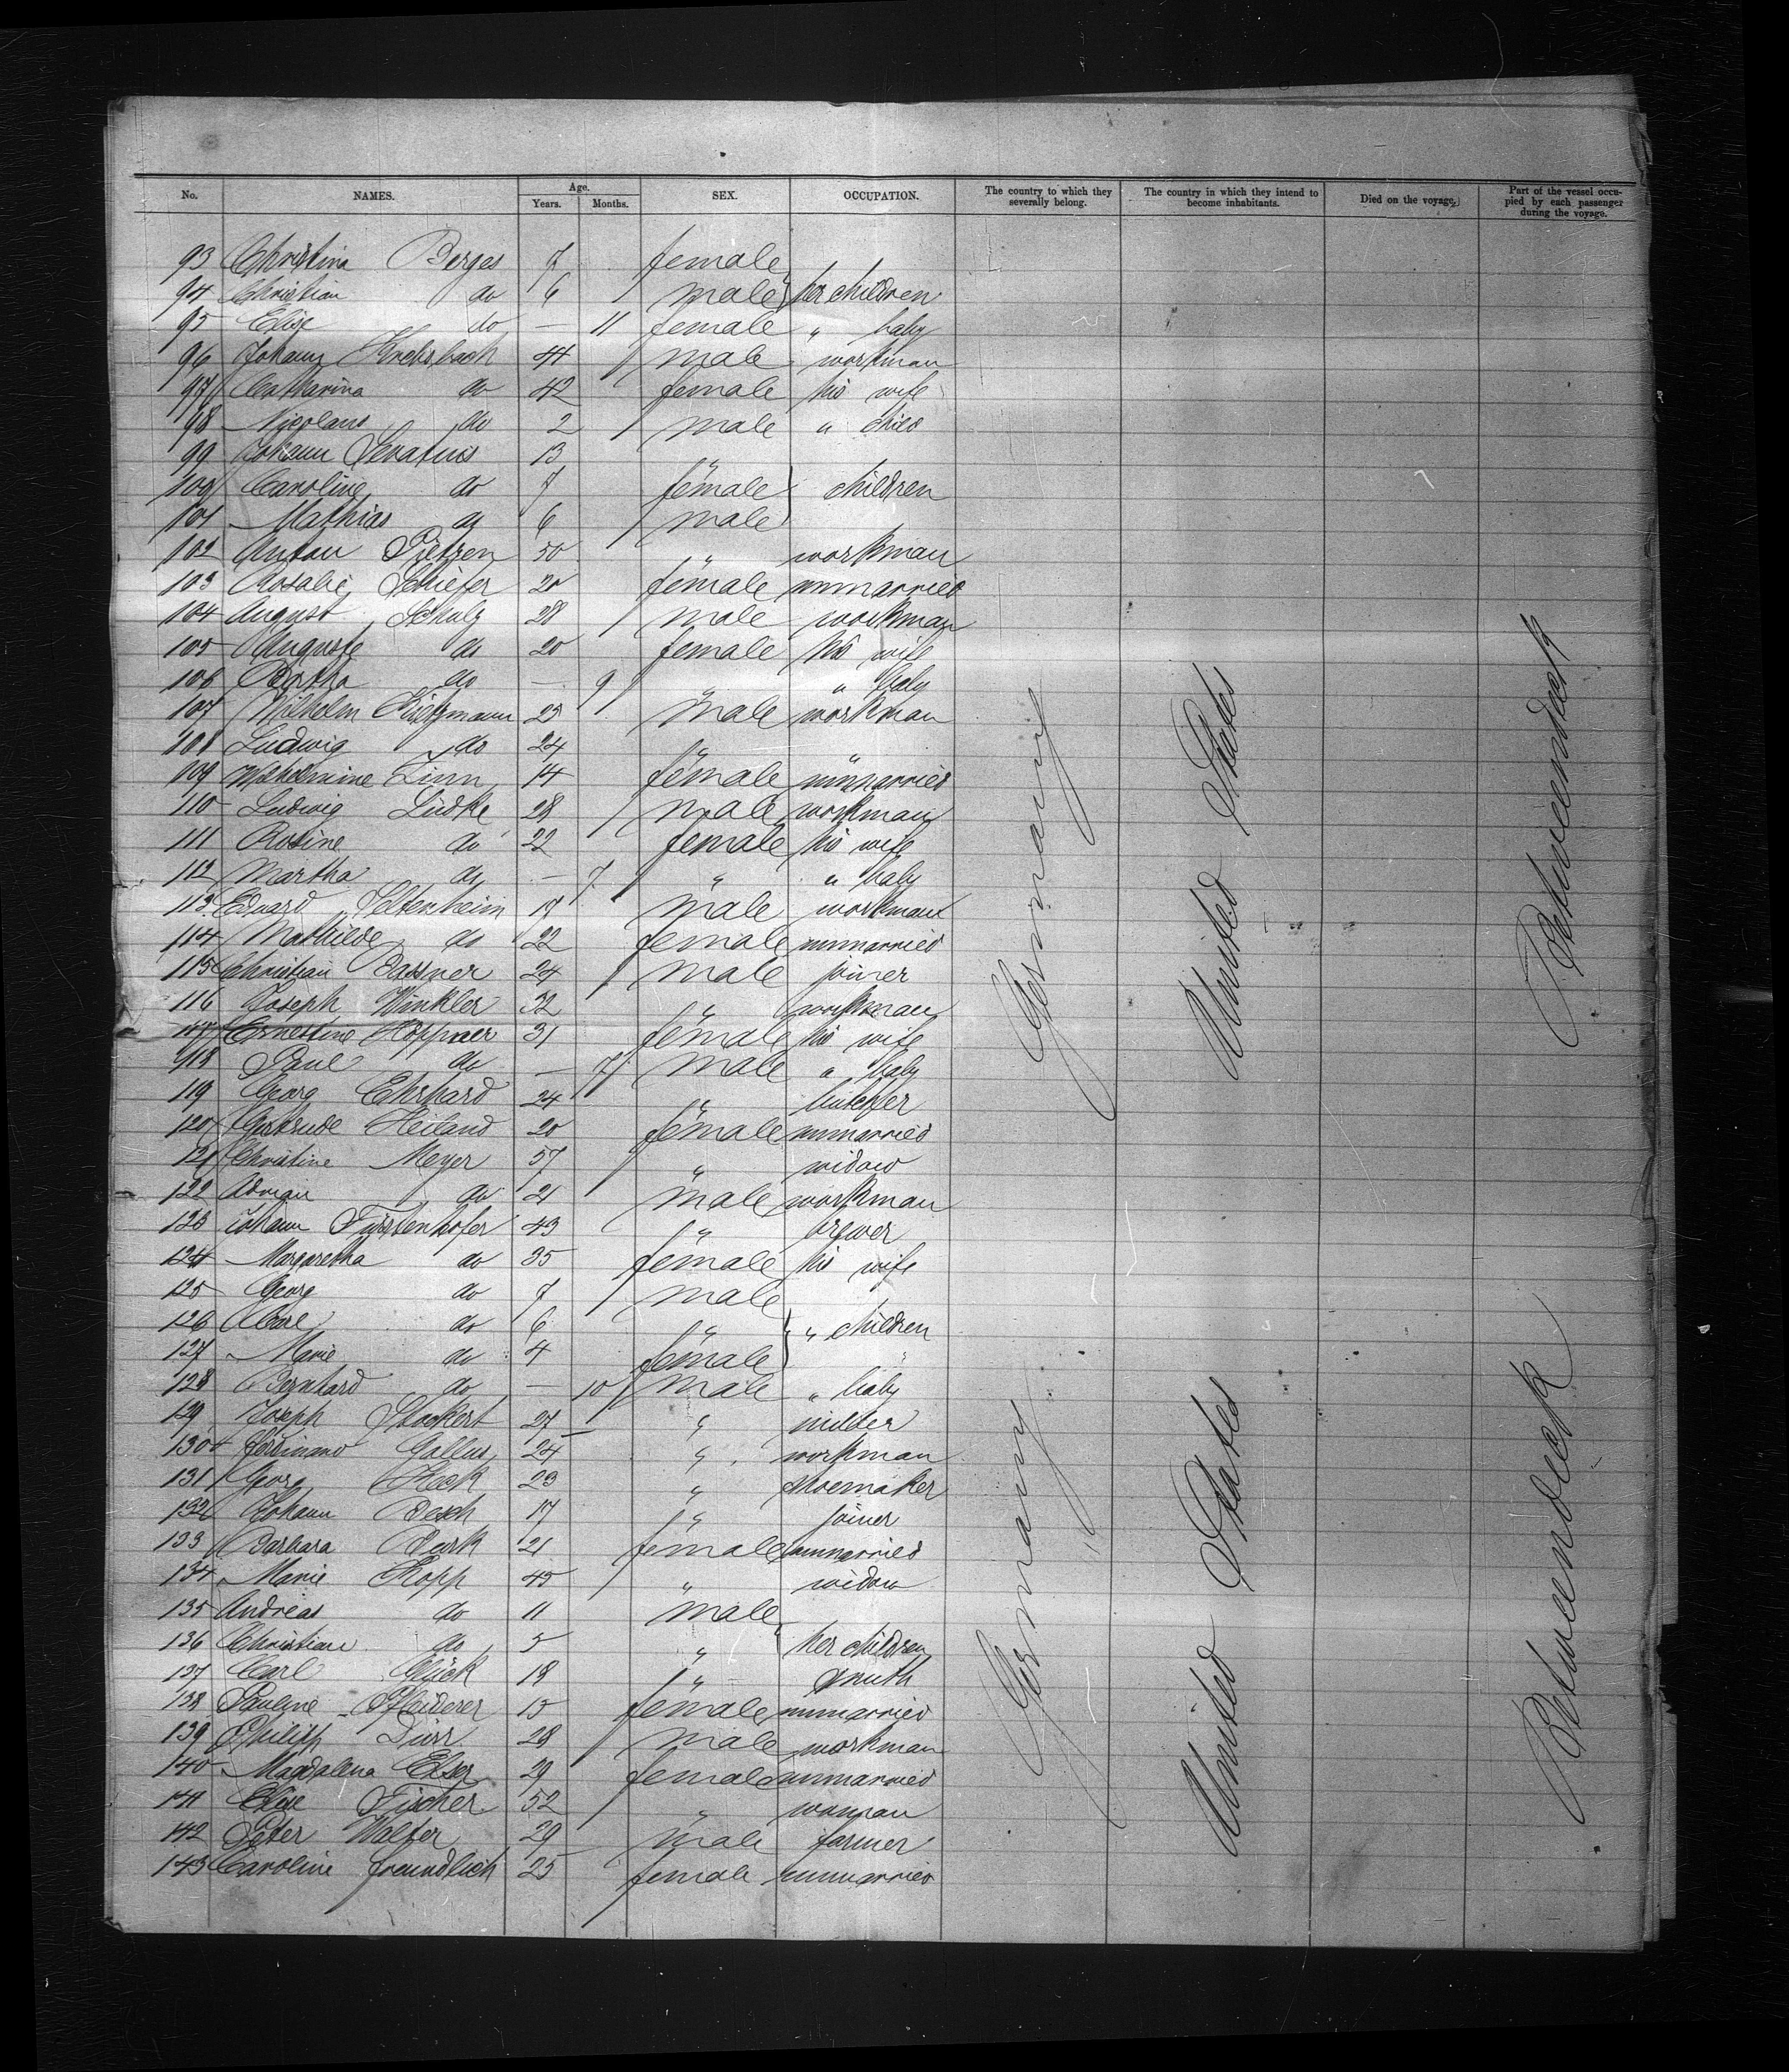 No. NAMES. Age. Years. Months. SEX. OCCUPATION. The country to which they severally belong. The country in which they intend to become inhabitants. Died on the voyage. Part of the vessel occupied by each passenger during the voyage.
93 Christina Berges 7 female
94 Christian do 6 male her children
95 Elise do — 11 female " baby
96 Johann 44 male workman
97 Catharina do 42 female his wife
98 Nicolaus do 2 male " child
99 Johann Servatius 13 "
100 Caroline do 7 female children
101 Mathias do 6 male
102 Anton Pietzen 50 " workman
103 Rosalie Schiefer 20 female unmarried
104 August Schulz 28 male workman
105 Auguste do 20 female his wife
106 Bertha do — 9 " " baby
107 Wilhelm 23 male workman
108 Ludwig do 24 " "
109 Wilhelmine Zinn 14 female unmarried
110 Ludwig Lüdke 28 male workman
111 Rosine do 22 female his wife
112 Martha do — 7 " " baby
113 Eduard Seltenheim 17 male workman
114 Mathilde do 22 female unmarried
115 Christian Gassner 24 male joiner
116 Joseph Winkler 32 " workman
117 Ernestine Höppner 31 female his wife
118 Paul do — 7 male " baby
119 Georg Ehrhard 24 " butcher
120 Gertrude Heiland 20 female unmarried
121 Christine Meyer 57 " widow
122 Adrian do 21 male workman
123 Johann Fürstenhofer 43 " brewer
124 Margaretha do 35 female his wife
125 Georg do 7 male
126 Carl do 6 " " children
127 Marie do 4 female
128 Bernhard do — 10 male " baby
129 Joseph Stockert 27 " miller
130 Ferdinand Gallus 24 " workman
131 Georg Heck 23 " shoemaker
132 Johann Desch 17 " joiner
133 Barbara 21 female unmarried
134 Marie Kopp 45 " widow
135 Andreas do 11 male
136 Christian do 5 " her children
137 Carl Glück 18 " smith
138 Pauline Pfleiderer 15 female unmarried
139 Philipp Dürr 28 male workman
140 Magdalena Elser 29 female unmarried
141 Elise Fischer 52 " woman
142 Peter Walter 29 male farmer
143 Caroline Freundlich 25 female unmarried
Germany
United States
Betweendeck
Germany
United States
Betweendeck